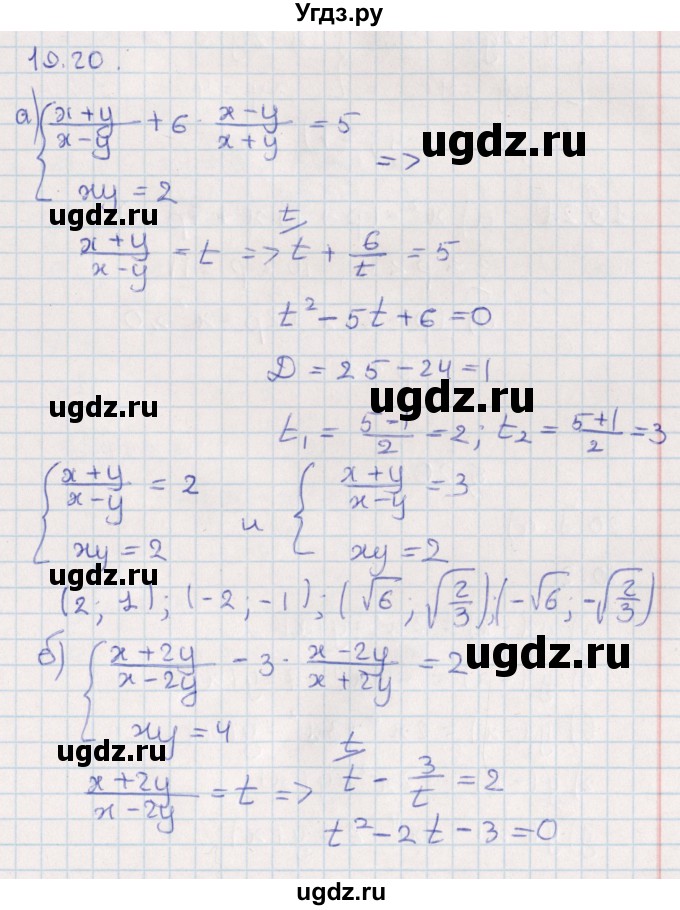 Угдз.ру
19.20.
а) { (x+y)/(x-y) + 6 · (x-y)/(x+y) = 5
xy = 2 =>
ugdz.ru
ugdz.ru
(x+y)/(x-y) = t => t + 6/t = 5 /t
t² - 5t + 6 = 0
D = 25 - 24 = 1
ugdz.ru
ugdz.ru
t₁ = (5-1)/2 = 2; t₂ = (5+1)/2 = 3
{ (x+y)/(x-y) = 2 и { (x+y)/(x-y) = 3
xy = 2 xy = 2
(2; 1); (-2; -1); (√6; √(2/3)); (-√6; -√(2/3))
б) { (x+2y)/(x-2y) - 3 · (x-2y)/(x+2y) = 2
ugdz.ru
xy = 4
ugdz.ru
(x+2y)/(x-2y) = t => t - 3/t = 2 /t
t² - 2t - 3 = 0
ugdz.ru